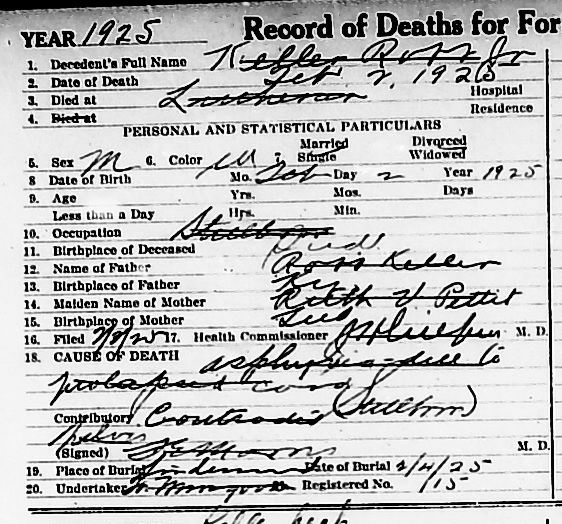 YEAR 1925 Record of Deaths for For
1. Decedent's Full Name Keller Ross Jr
2. Date of Death Feb 2, 1925
3. Died at Lutheran Hospital
4. Died at Residence
PERSONAL AND STATISTICAL PARTICULARS
Married Divorced
5. Sex M 6. Color W 7. Single Widowed
8 Date of Birth Mo. Feb Day 2 Year 1925
9. Age Yrs. Mos. Days
Less than a Day Hrs. Min.
10. Occupation Stillborn
11. Birthplace of Deceased Ind.
12. Name of Father Ross Keller
13. Birthplace of Father Ky
14. Maiden Name of Mother Ruth V Pettit
15. Birthplace of Mother Ind
16. Filed 2/3/25 17. Health Commissioner M. D.
18. CAUSE OF DEATH asphyxia due to
prolapsed cord
Contributory Contracted (Stillborn)
Pelvis
(Signed) M. D.
19. Place of Burial Lindenwood Date of Burial 2/4/25
20. Undertaker Registered No. 115